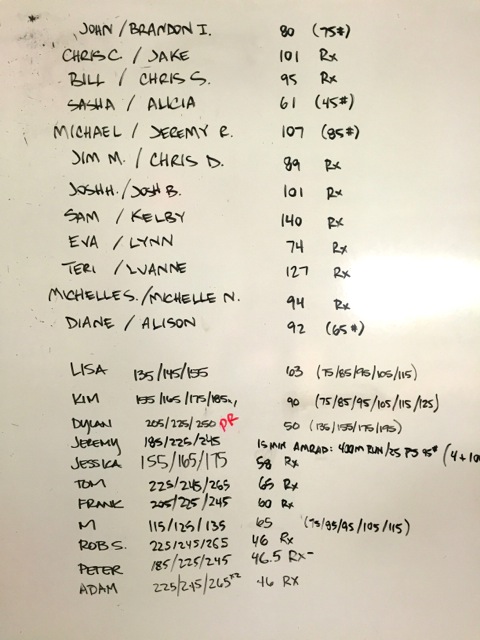 JOHN / BRANDON I. 80 (75#)
CHRIS C. / JAKE 101 Rx
BILL / CHRIS S. 95 Rx
SASHA / ALICIA 61 (45#)
MICHAEL / JEREMY R. 107 (85#)
JIM M. / CHRIS D. 89 Rx
JOSH H. / JOSH B. 101 Rx
SAM / KELBY 140 Rx
EVA / LYNN 74 Rx
TERI / LUANNE 127 Rx
MICHELLE S. / MICHELLE N. 94 Rx
DIANE / ALISON 92 (65#)
LISA 135/145/155 63 (75/85/95/105/115)
KIM 155/165/175/185x1 90 (75/85/95/105/115/125)
DYLAN 205/225/250 PR 50 (135/155/175/195)
JEREMY 185/225/245 15 MIN AMRAP: 400M RUN/25 PS 95# (4 + 100
JESSICA 155/165/175 58 Rx
TOM 225/245/265 65 Rx
FRANK 205/225/245 60 Rx
M 115/125/135 65 (75/85/95/105/115)
ROB S. 225/245/265 46 Rx
PETER 185/225/245 46.5 Rx-
ADAM 225/245/265x2 46 RX